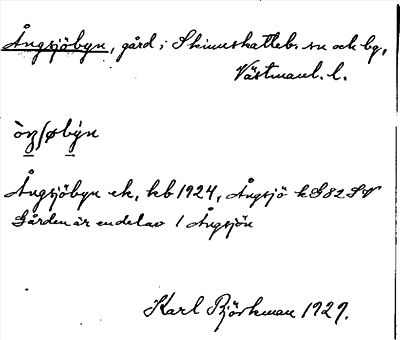 Ångsjöbyn, gård i Skinnskatteb. sn och bg,
Västmanl. l.
òŋʃøby̆n
Ångsjöbyn ek, kb 1924, Ångsjö k G82 SV
Gården är en del av 1 Ångsjön
Karl Björkman 1929.